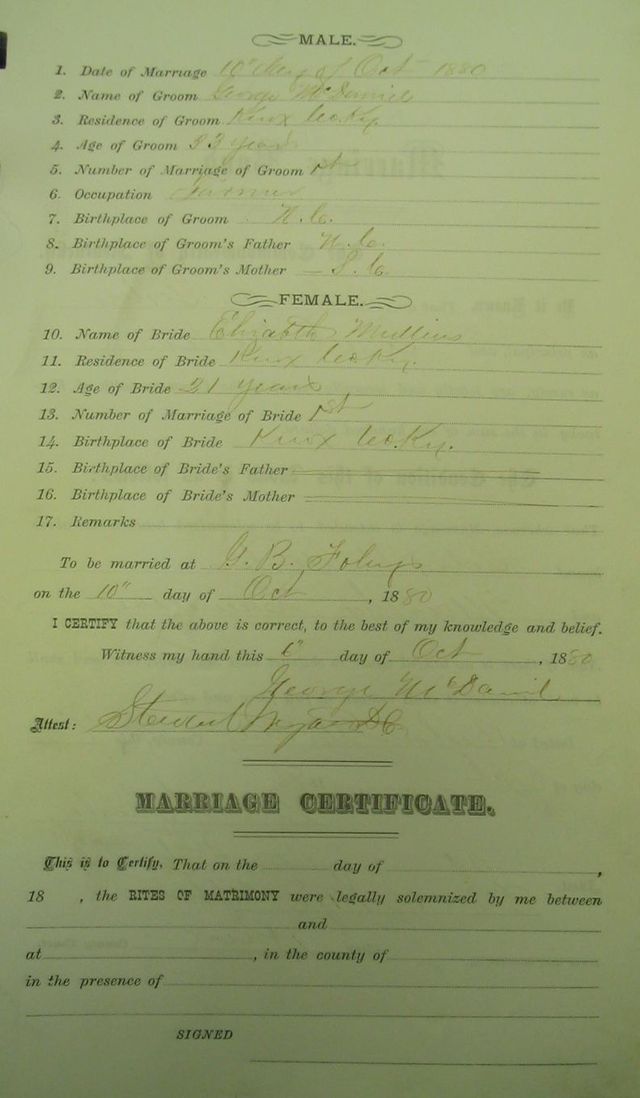 MALE.
1. Date of Marriage 10" day of Oct 1880
2. Name of Groom George McDaniel
3. Residence of Groom Knox Co Ky
4. Age of Groom 23 years
5. Number of Marriage of Groom 1st
6. Occupation Farmer
7. Birthplace of Groom N. C.
8. Birthplace of Groom's Father N. C.
9. Birthplace of Groom's Mother — S. C.
FEMALE.
10. Name of Bride Elizabeth Mullins
11. Residence of Bride Knox Co Ky.
12. Age of Bride 21 years
13. Number of Marriage of Bride 1st
14. Birthplace of Bride Knox Co. Ky.
15. Birthplace of Bride's Father
16. Birthplace of Bride's Mother
17. Remarks
To be married at G. B.
on the 10" day of Oct, 1880
I CERTIFY that the above is correct, to the best of my knowledge and belief.
Witness my hand this 6" day of Oct, 1880
George McDaniel
Attest: D C
MARRIAGE CERTIFICATE.
This is to Certify, That on the day of ,
18 , the RITES OF MATRIMONY were legally solemnized by me between
and
at , in the county of
in the presence of
SIGNED